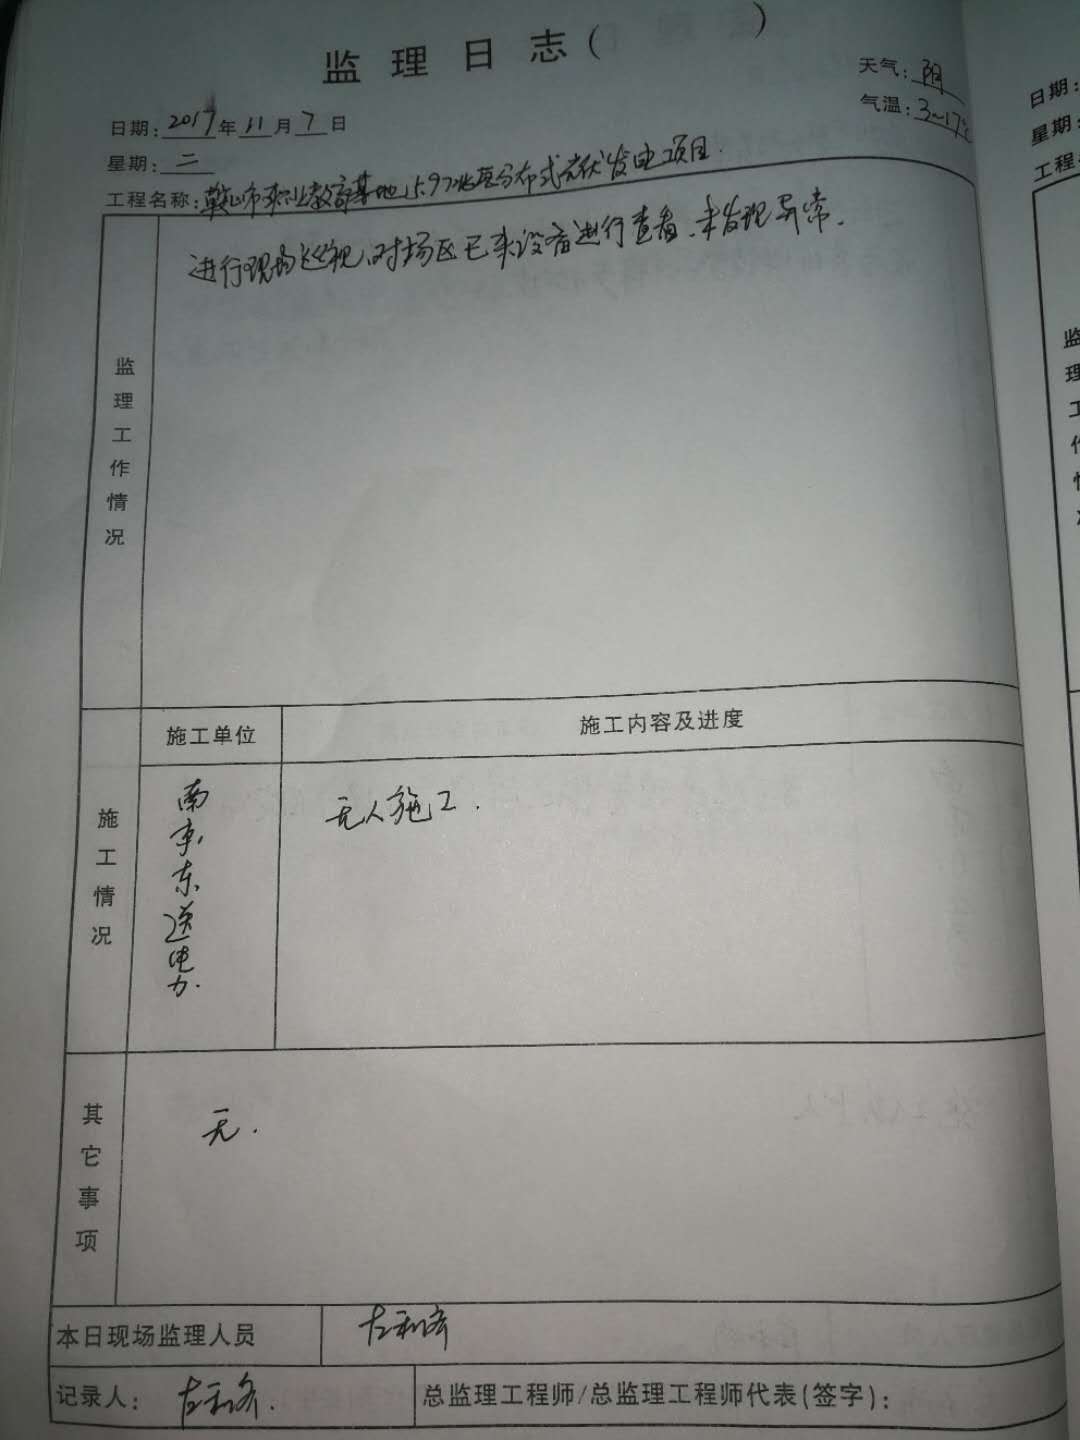 监理日志( )
天气:阴
日期:2017年11月7日
气温:3~17℃
星期:二
工程名称:鞍山市职业教育基地5.97兆瓦分布式光伏发电项目.
监理工作情况
进行现场巡视,对场区已来设备进行查看,未发现异常.
施工情况
施工单位
施工内容及进度
南京东送电力.
无人施工.
其它事项
无.
本日现场监理人员
记录人:
总监理工程师/总监理工程师代表(签字):
日期:
星期:
工程
监理工作情况